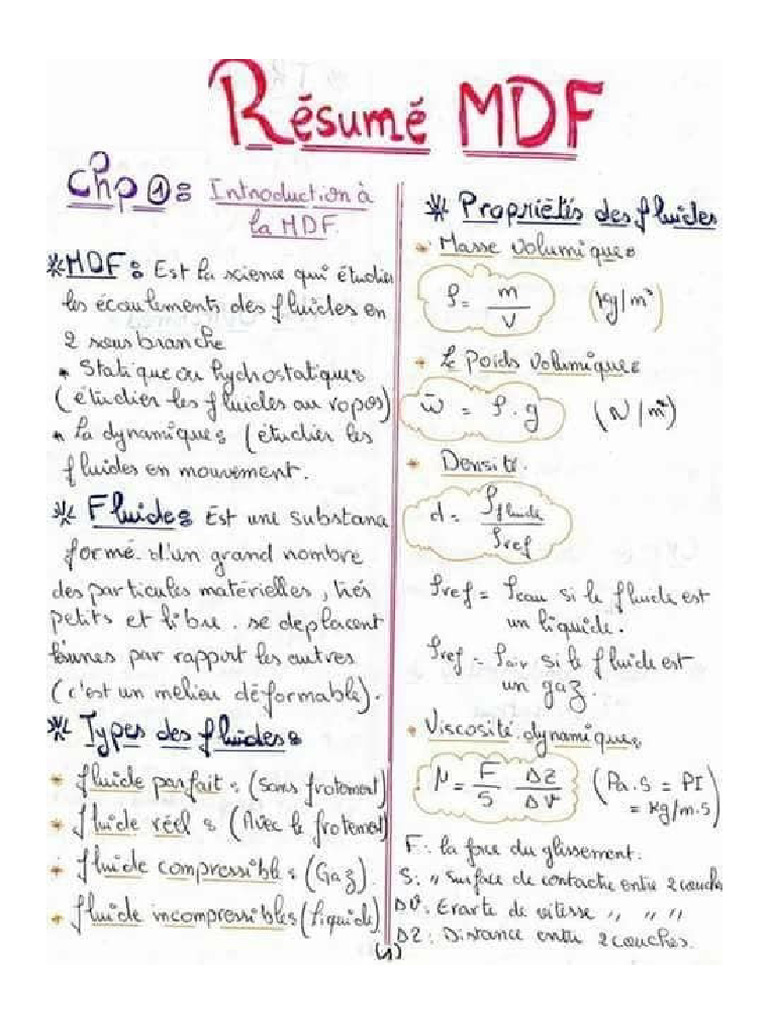 Résumé MDF
Chp ①: Introduction à
la MDF.
*MDF: Est la science qui étudier
les écoulements des fluides en
2 sous branche
* Statique ou hydrostatique:
(étudier les fluides au repos)
* la dynamique: (étudier les
fluides en mouvement.
* Fluide: Est une substana
formé d'un grand nombre
des particules matérielles, très
petits et libre. se deplacent
les unes par rapport les autres
(c'est un melieu déformable).
* Types des fluides:
* fluide parfait: (Sans frotement)
* fluide réel: (Avec le frotement)
+ fluide compressible: (Gaz).
* fluide incompressibles (liquide)
* Propriétés des fluides
* Masse volumique:
ρ = m / V (kg/m³)
+ Le Poids Volumique:
ω̄ = ρ . g (N/m³)
* Densité.
d = ρfluide / ρref
ρref = ρeau si le fluide est
un liquide.
ρref = ρair si le fluide est
un gaz.
* Viscosité dynamique:
μ = F/S ΔZ/ΔV (Pa.S = PI)
= kg/m.s)
F: la force du glissement.
S: " surface de contacte entre 2 couche
ΔV: Ecarte de vitesse " " "
ΔZ: Distance entre 2 couches.
(1)